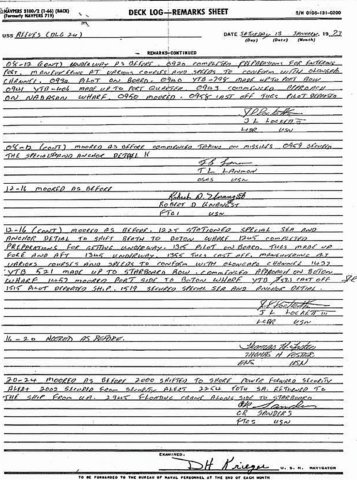 NAVPERS 3100/2 (1-66) (BACK)
(Formerly NAVPERS 719)
DECK LOG—REMARKS SHEET
USS REEVES (DLG 24)
DATE SATURDAY 13 JANUARY, 19
(Day) (Date) (Month)
REMARKS—CONTINUED
08-12 (CONT) UNDERWAY AS BEFORE. 0920 COMPLETED PREPARATIONS FOR ENTERING
PORT. MANEUVERING AT VARIOUS COURSES AND SPEEDS TO CONFORM WITH
CHANNEL. PILOT ON BOARD. YTB-798 MADE UP TO PORT BOW
YTB MADE UP TO PORT QUARTER. 0943 COMMENCED APPROACH
ON WHARF. 0950 MOORED. 0958 CAST OFF TUGS PILOT DEPARTED
J L LOCKETT
LCDR USN
08-12 (CONT) MOORED AS BEFORE COMMENCED TAKING ON MISSILES SECURED
THE SPECIAL SEA AND ANCHOR DETAIL
T. L. LANMON
USN
12-16 MOORED AS BEFORE
ROBERT D
USN
12-16 (CONT) MOORED AS BEFORE. 1225 STATIONED SPECIAL SEA AND
ANCHOR DETAIL TO SHIFT BERTH TO BOTON WHARF 1245 COMPLETED
PREPARATIONS FOR GETTING UNDERWAY. 1315 PILOT ON BOARD. TUGS MADE UP
FORE AND AFT 1345 UNDERWAY. 1356 TUGS CAST OFF. MANEUVERING AT
VARIOUS COURSES AND SPEEDS TO CONFORM WITH CHANNEL
YTB 521 MADE UP TO STARBOARD BOW, COMMENCED APPROACH ON BOTON
WHARF MOORED PORT SIDE TO BOTON WHARF YTB CAST OFF
1515 PILOT DEPARTED SHIP. 1519 SECURED SPECIAL SEA AND ANCHOR DETAIL.
J L LOCKETT
LCDR USN
16-20 MOORED AS BEFORE.
THOMAS H FOSTER
ENS USN
20-24 MOORED AS BEFORE 2000 SHIFTED TO SHORE POWER SECURITY
ALERT 2002 SECURED FROM SECURITY ALERT 2254 SA. RETURNED TO
THE SHIP FROM U.A. 2345 FLOATING CRANE ALONG SIDE TO STARBOARD
C.R. SANDERS
USN
EXAMINED:
DH Krieger U. S. N. NAVIGATOR
TO BE FORWARDED TO THE BUREAU OF NAVAL PERSONNEL AT THE END OF EACH MONTH